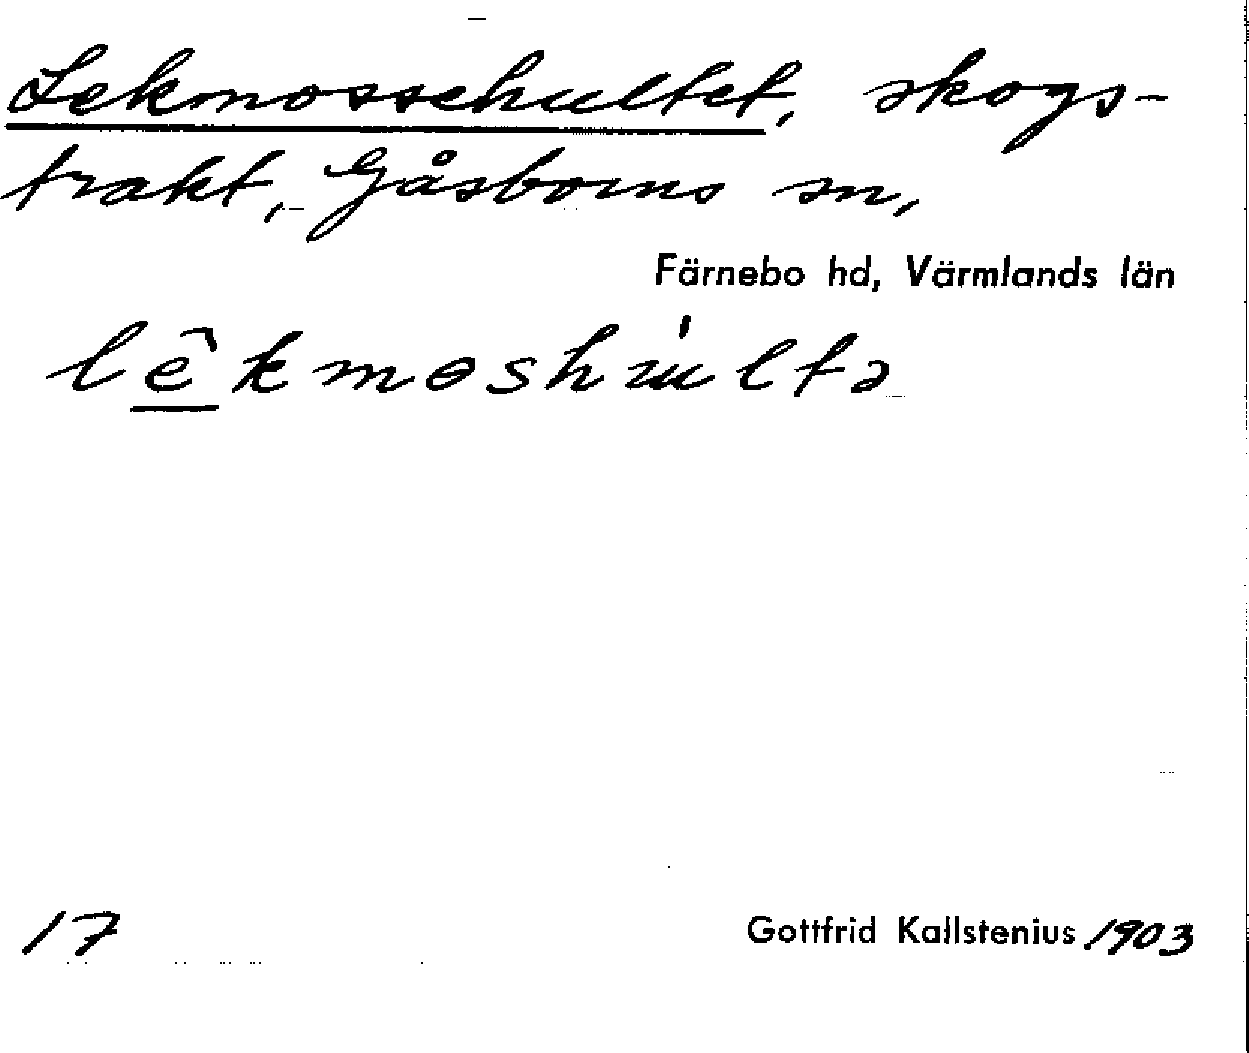 Lekmossehultet, skogs-
trakt, Gåsborns sn,
Färnebo hd, Värmlands län
lêkmɵshúltə
17
Gottfrid Kallstenius 1903